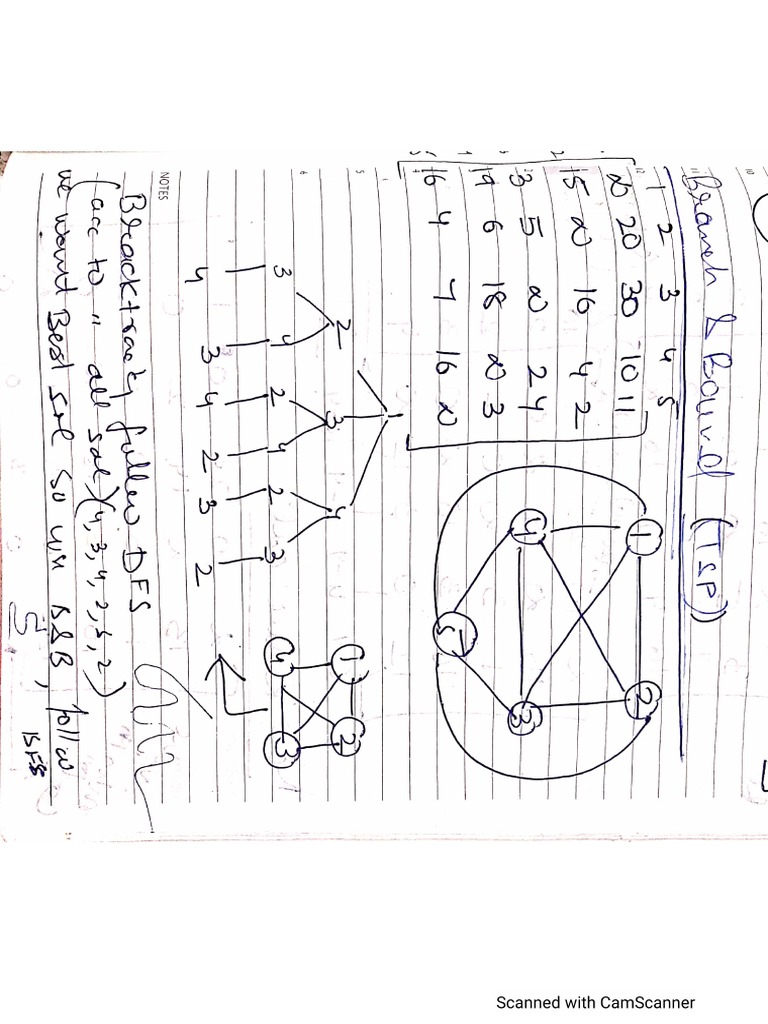 Branch & Bound (TSP)
1 2 3 4 5
∞ 20 30 10 11
15 ∞ 16 4 2
3 5 ∞ 2 4
19 6 18 ∞ 3
16 4 7 16 ∞
1
2
4
3
5
1
2 3 4
3 4 2 4 2 3
4 3 4 2 3 2
1
2
4
3
NOTES
Backtracking follow DFS
(acc to " all sol) (4, 3, 4, 2, 3, 2)
we want Best sol so use B&B, follow
BFS
Scanned with CamScanner